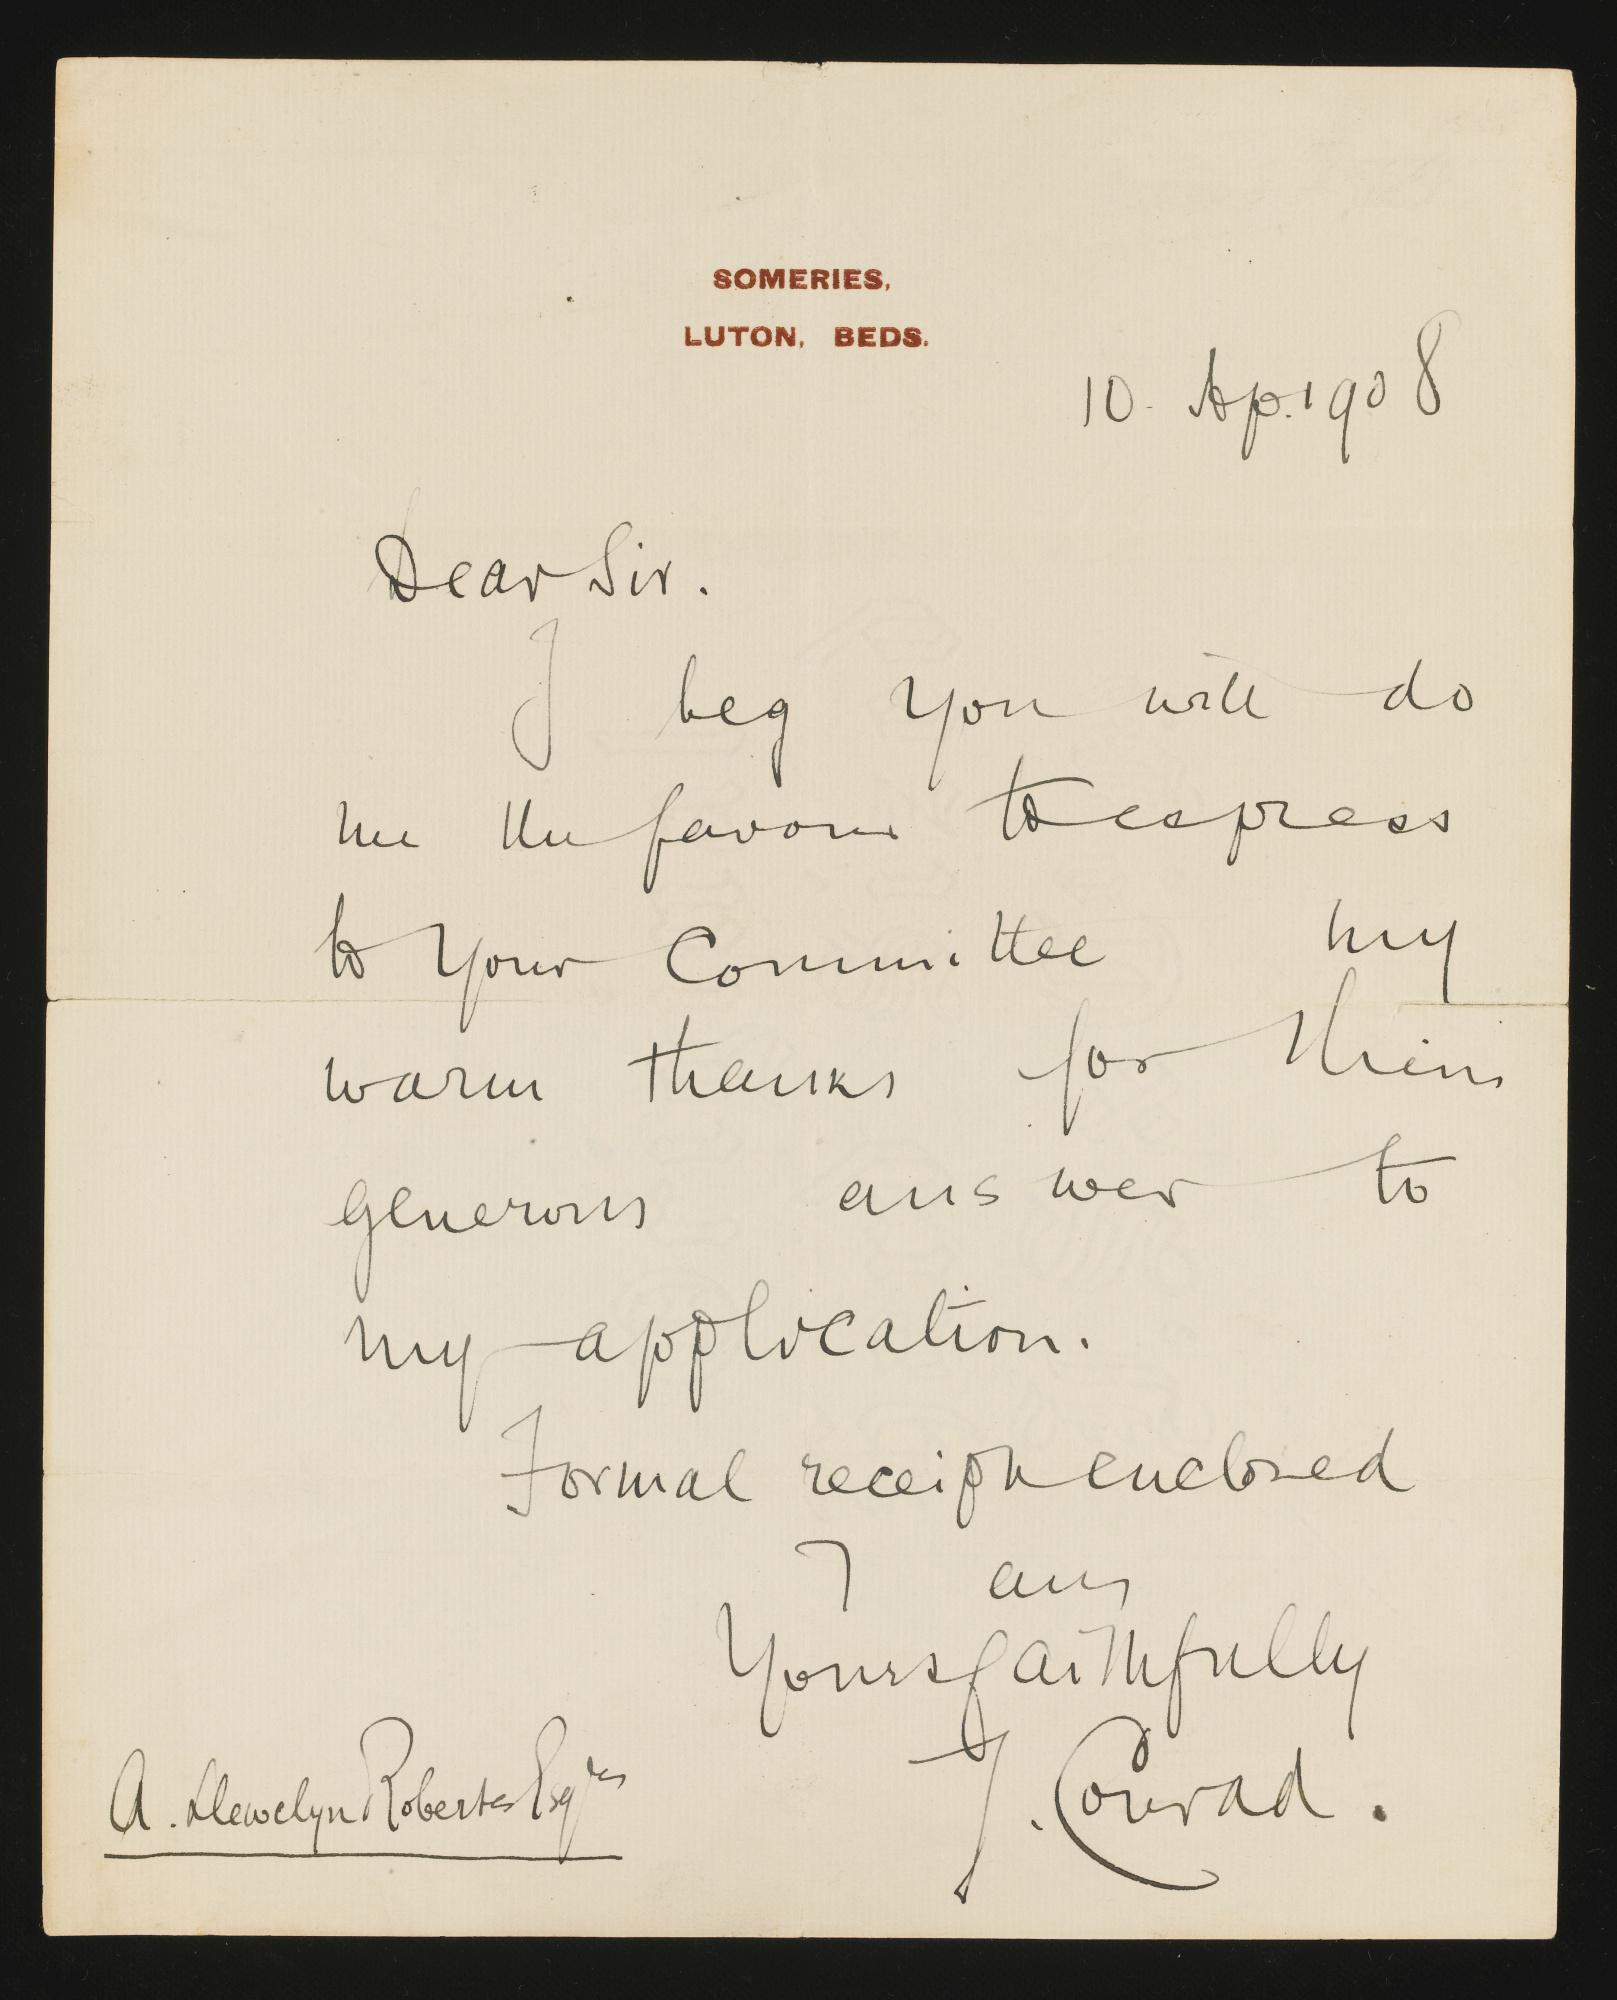 SOMERIES,
LUTON, BEDS.
10. Ap. 1908
Dear Sir.
I beg you will do
me the favour to express
to your Committee my
warm thanks for their
generous answer to
my application.
Formal receipt enclosed
I am
Yours faithfully
J. Conrad.
A. Llewelyn Roberts Esqre